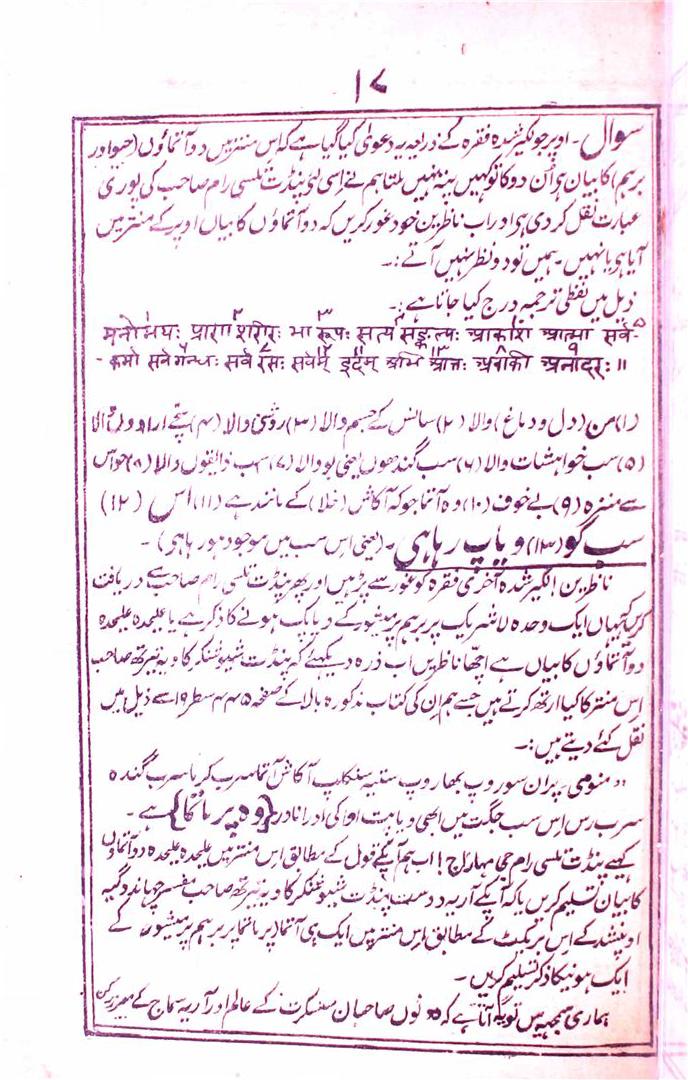 ۱۷
سوال - اوپر جو لکیر شدہ فقرہ کے ذریعہ یہ دعویٰ کیا گیا ہے کہ اس منتر میں دو آتماؤں (جیو اور
برہم) کا بیان ہی ان دو کا تو کہیں پتہ نہیں ملتا ہم نے اسی لئے پنڈت تلسی رام صاحب کی پوری
عبارت نقل کر دی ہی اور اب ناظرین خود غور کریں کہ دو آتماؤں کا بیاں اوپر کے منتر میں
آیا ہی یا نہیں - ہمیں تو دو نظر نہیں آتے :-
ذیل میں لفظی ترجمہ درج کیا جاتا ہے :-
मनोमयः प्राण शरीरः भा रूपः सत्य सङ्कल्पः आकाश आत्मा सर्व-
-कर्मा सर्व गन्धः सर्व रसः सर्वम् इदम् अभि आत्तः अवाकी अनादरः ॥
(۱) من (دل و دماغ) والا (۲) سانس کے جسم والا (۳) روشنی والا (۴) سچے ارادوں والا
(۵) سب خواہشات والا (۶) سب گندھوں یعنی بو والا (۷) سب ذایقوں والا (۸) حواس
سے منزہ (۹) بے خوف (۱۰) وہ آتما جو کہ آکاش (خلا) کے مانند ہے (۱۱) اس (۱۲)
سب کو (۱۳) ویاپ رہا ہی - (یعنی اس سب میں موجود ہو رہا ہی) -
ناظرین! لکیر شدہ آخری فقرہ کو غور سے پڑہیں اور پھر پنڈت تلسی رام صاحب سے دریافت
کریں کہ یہاں ایک وحدہ لا شریک پر برہم پرمیشور کے ویاپک ہونے کا ذکر ہے یا علیحدہ علیحدہ
دو آتماؤں کا بیاں ہے اچھا ناظریں اب ذرہ دیکھئے کہ پنڈت شیو شنکر کاویہ تیرتھ صاحب
اس منتر کا کیا ارتھ کرتے ہیں جسے ہم ان کی کتاب مذکورہ بالا کے صفحہ ۴۴۵ سطر ۱۹ سے ذیل میں
نقل کئے دیتے ہیں :-
"منومی - پران سوروپ بھاروپ ستیہ سنکلپ آکاش آتما سرب کرما سرب گندہ
سرب رس اس سب جگت میں ابھی ویاپت اواکی اور انادر {وہ پرماتما} ہے -
کہیے پنڈت تلسی رام جی مہاراج! اب ہم آپکے قول کے مطابق اس منتر میں علیحدہ علیحدہ دو آتماؤں
کا بیان تسلیم کریں یا کہ آپکے آریہ دوست پنڈت شیو شنکر کاویہ تیرتھ صاحب مفسر چھاندوگیہ
اوپنشد کے اس بریکٹ کے مطابق اس منتر میں ایک ہی آتما (پرماتما) پر برہم پرمیشور کے
ایک ہونیکا ذکر تسلیم کریں -
ہماری سمجھ میں تو یہ آتا ہے کہ دونوں صاحبان سنسکرت کے عالم اور آریہ سماج کے معزز رکن